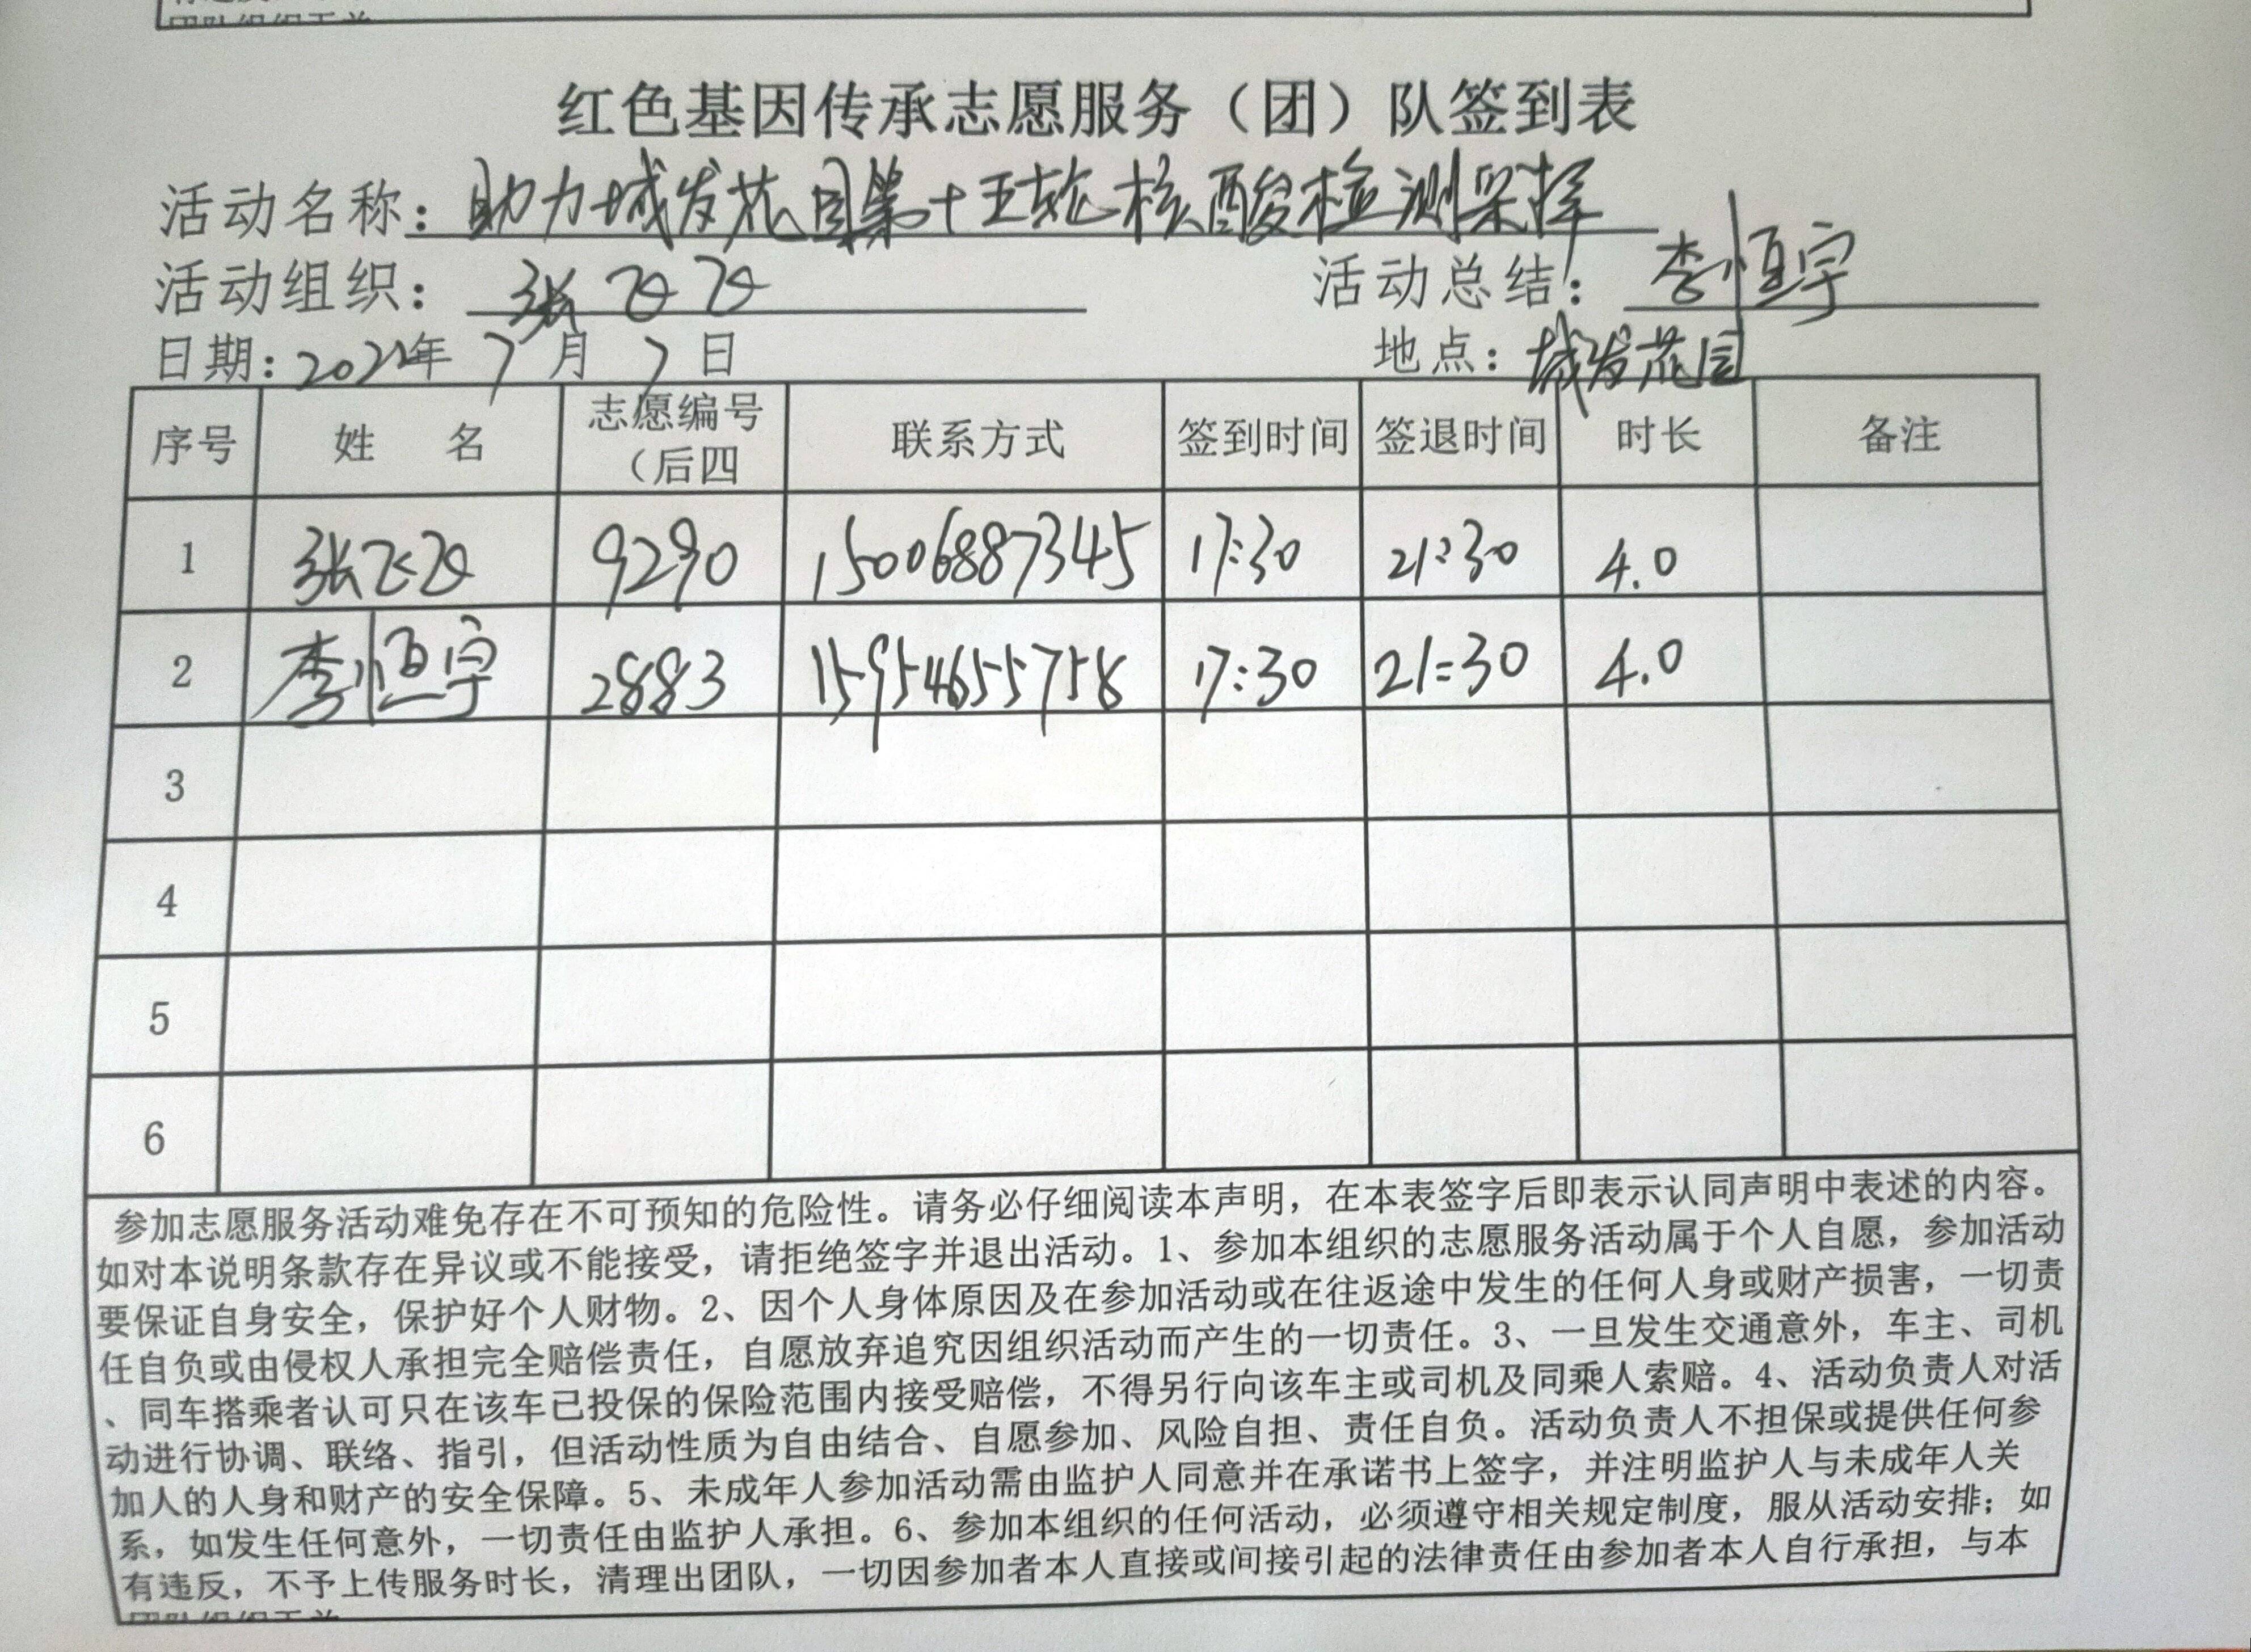 红色基因传承志愿服务（团）队签到表
活动名称：助力城发花园第十五轮核酸检测采样
活动组织：张飞飞 活动总结：李恒宇
日期：2022年7月7日 地点：城发花园
序号 姓 名 志愿编号（后四 联系方式 签到时间 签退时间 时长 备注
1 张飞飞 9290 15006887345 17:30 21:30 4.0
2 李恒宇 2883 15954655758 17:30 21:30 4.0
3
4
5
6
参加志愿服务活动难免存在不可预知的危险性。请务必仔细阅读本声明，在本表签字后即表示认同声明中表述的内容。
如对本说明条款存在异议或不能接受，请拒绝签字并退出活动。1、参加本组织的志愿服务活动属于个人自愿，参加活动
要保证自身安全，保护好个人财物。2、因个人身体原因及在参加活动或在往返途中发生的任何人身或财产损害，一切责
任自负或由侵权人承担完全赔偿责任，自愿放弃追究因组织活动而产生的一切责任。3、一旦发生交通意外，车主、司机
、同车搭乘者认可只在该车已投保的保险范围内接受赔偿，不得另行向该车主或司机及同乘人索赔。4、活动负责人对活
动进行协调、联络、指引，但活动性质为自由结合、自愿参加、风险自担、责任自负。活动负责人不担保或提供任何参
加人的人身和财产的安全保障。5、未成年人参加活动需由监护人同意并在承诺书上签字，并注明监护人与未成年人关
系，如发生任何意外，一切责任由监护人承担。6、参加本组织的任何活动，必须遵守相关规定制度，服从活动安排；如
有违反，不予上传服务时长，清理出团队，一切因参加者本人直接或间接引起的法律责任由参加者本人自行承担，与本